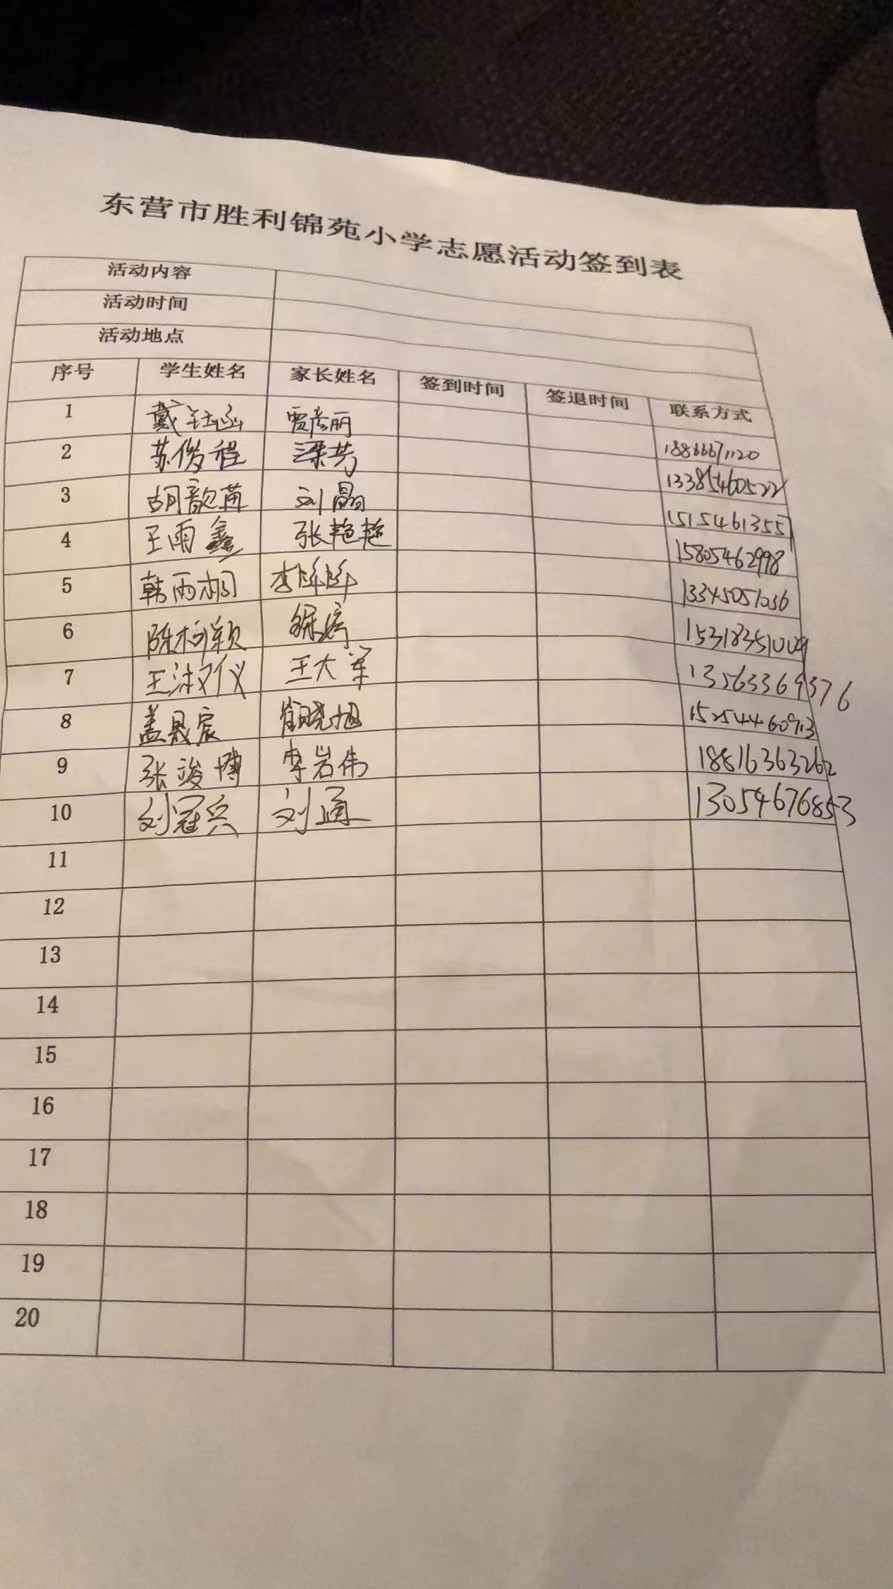 东营市胜利锦苑小学志愿活动签到表
活动内容
活动时间
活动地点
序号 学生姓名 家长姓名 签到时间 签退时间 联系方式
1 戴钰涵 贾彦丽 18866671120
2 苏俊程 梁芳 13385460522
3 胡歆苒 刘晶 1515461355
4 王雨鑫 张艳艳 15805462998
5 韩雨桐 李 13345051036
6 陈柯颖 15318351009
7 王淑仪 王大军 13563369376
8 盖晟宸 肖晓旭 15254460913
9 张竣博 李岩伟 18816363262
10 刘冠兵 刘通 13054676853
11
12
13
14
15
16
17
18
19
20